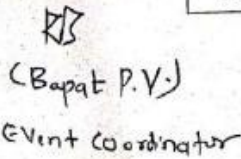 (Bapat P.V.)
Event Coordinator